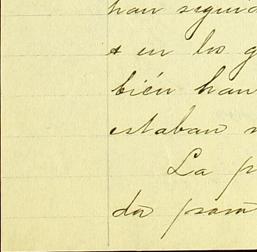 han seguid
t en los g
bién han
estaban
La p
da para